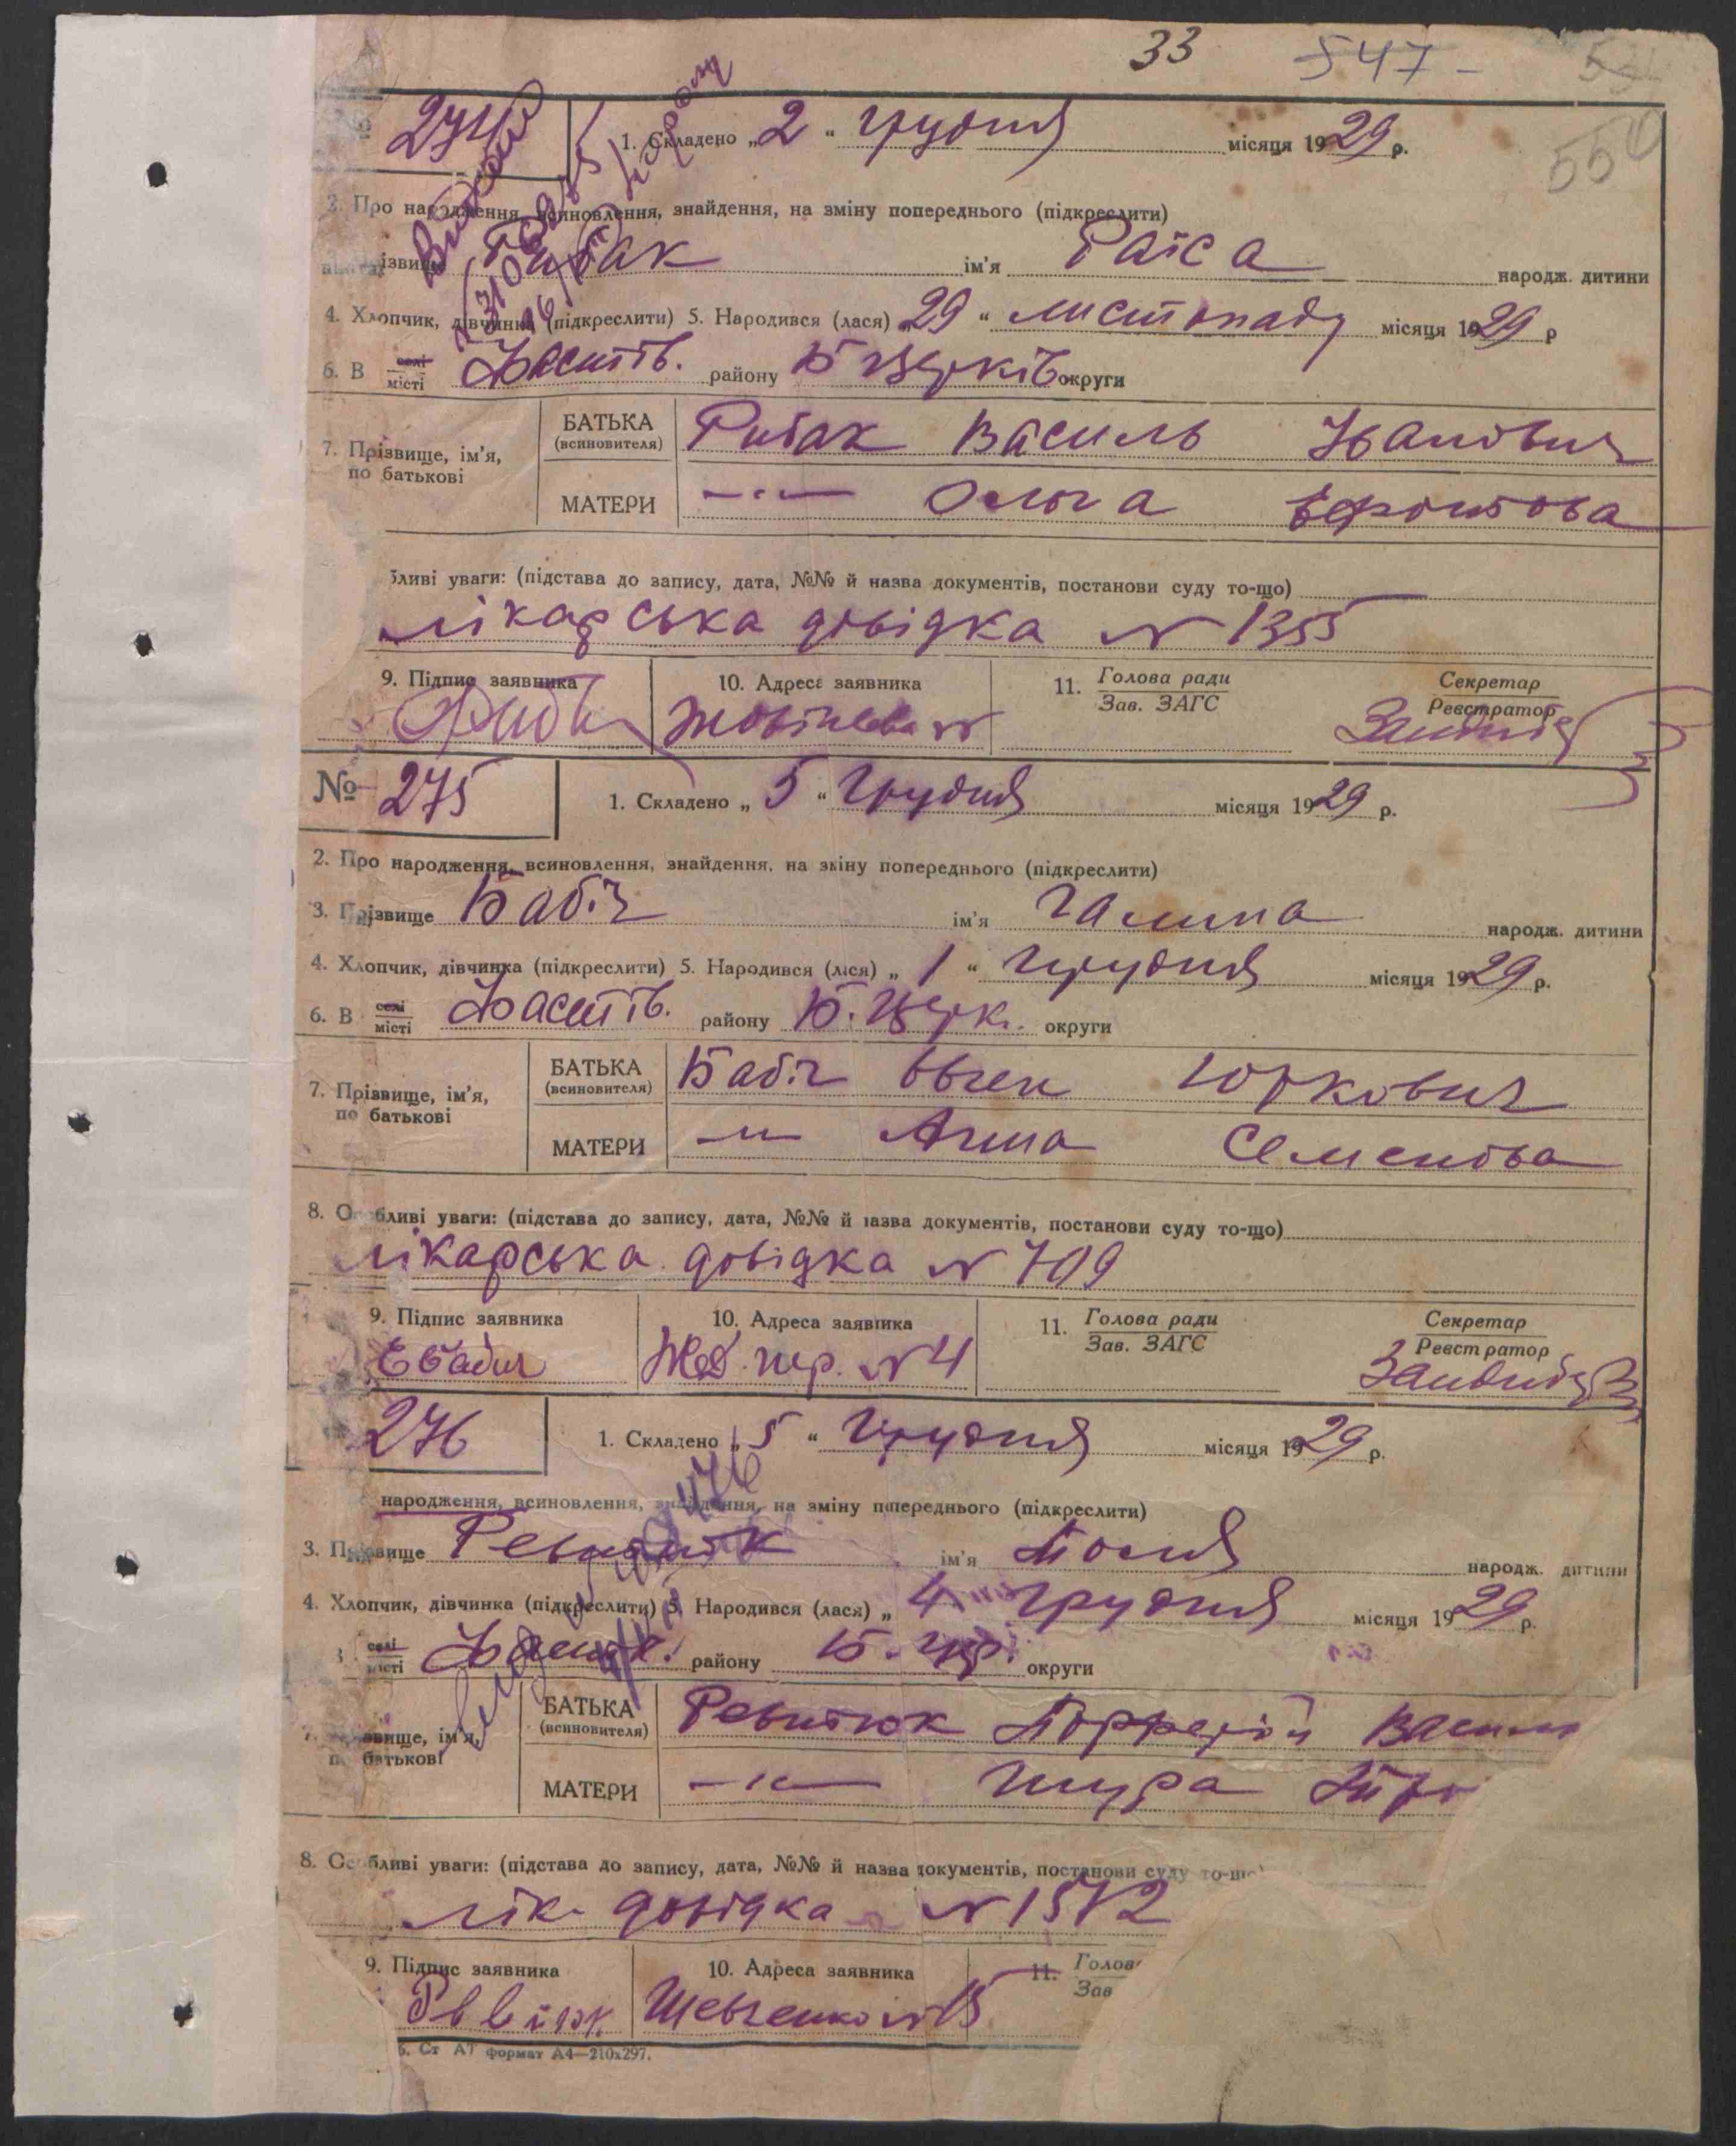 33 547 -
550
№ 274 1. Складено „2“ грудня місяця 1929 р.
2. Про народження, всиновлення, знайдення, на зміну попереднього (підкреслити)
Прізвище Рибак ім'я Раїса народж. дитини
4. Хлопчик, дівчинка (підкреслити) 5. Народився (лася) „29“ листопаду місяця 1929 р
6. В селі місті Фастів. району Б Церків округи
7. Прізвище, ім'я, по батькові
БАТЬКА (всиновителя) Рибак Василь Іванович
МАТЕРИ —〃— Ольга
бливі уваги: (підстава до запису, дата, №№ й назва документів, постанови суду то-що)
лікарська довідка N 1355
9. Підпис заявника 10. Адреса заявника 11. Голова ради Зав. ЗАГС Секретар Реєстратор
№ 275 1. Складено „5“ грудня місяця 1929 р.
2. Про народження, всиновлення, знайдення, на зміну попереднього (підкреслити)
3. Прізвище Бабіч ім'я Галина народж. дитини
4. Хлопчик, дівчинка (підкреслити) 5. Народився (лася) „1“ грудня місяця 1929 р.
6. В селі місті Фастів. району Б. Церк. округи
7. Прізвище, ім'я, по батькові
БАТЬКА (всиновителя) Бабіч Євген Юркович
МАТЕРИ —〃— Ганна Семенова
8. Особливі уваги: (підстава до запису, дата, №№ й назва документів, постанови суду то-що)
лікарська довідка N 709
9. Підпис заявника 10. Адреса заявника 11. Голова ради Зав. ЗАГС Секретар Реєстратор
ЕБабич N 4
276 1. Складено „5“ грудня місяця 1929 р.
народження, всиновлення, знайдення, на зміну попереднього (підкреслити)
3. Прізвище Ревитюк ім'я Поля народж. дитини
4. Хлопчик, дівчинка (підкреслити) 5. Народився (лася) „4 грудня місяця 1929 р.
селі місті Фастів. району Б. Цер. округи
7. Прізвище, ім'я, по батькові
БАТЬКА (всиновителя) Ревитюк Порферій Василь
МАТЕРИ —〃— Шура
8. Особливі уваги: (підстава до запису, дата, №№ й назва документів, постанови суду то-що)
лік. довідка N 1572
9. Підпис заявника 10. Адреса заявника 11. Голов Зав
Шевченко N 15
Ст АТ формат А4—210х297.